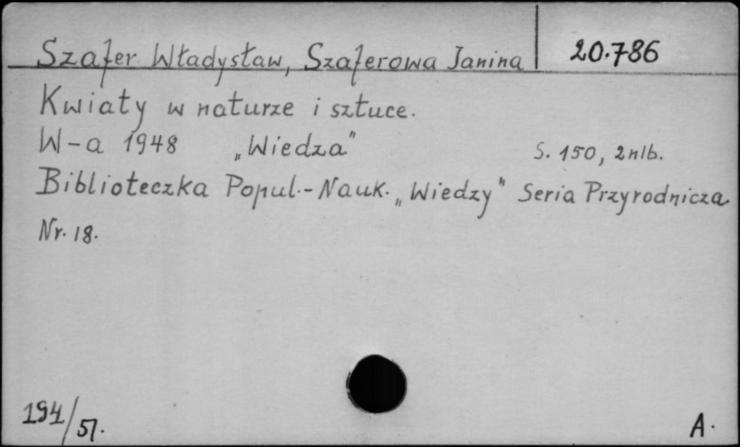 Szafer Władysław, Szaferowa Janina 20.786
Kwiaty w naturze i sztuce.
W-a 1948 „Wiedza" S. 150, 2 nlb.
Biblioteczka Popul.-Nauk. „Wiedzy" Seria Przyrodnicza
Nr. 18.
194/51. A.